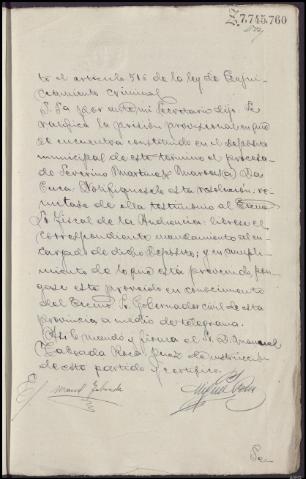 Z.7.745.760
to el artículo 516 de la ley de Enjui-
ciamiento criminal
S. Sa por ante mi Secretario dijo: Se
ratifica la prision provisional en que
se encuentra constituido en el deposito
municipal de este termino el procesa-
do Severino Martinez Marcos (a) Da
Cuca. Notifiquesele esta resolucion: re-
mitase de ella testimonio al Excmo
Sr Fiscal de la Audiencia: librese el
correspondiente mandamiento al en-
cargado de dicho Deposito; y en cumpli-
miento de lo que está prevenido pon-
gase este proveido en conocimiento
del Excmo Sr Gobernador civil de esta
provincia a medio de telegrama.
Asi lo mando y firma el Sr D. Manuel
Taboada Roca Juez de instruccion
de este partido y certifico.
Manuel Taboada